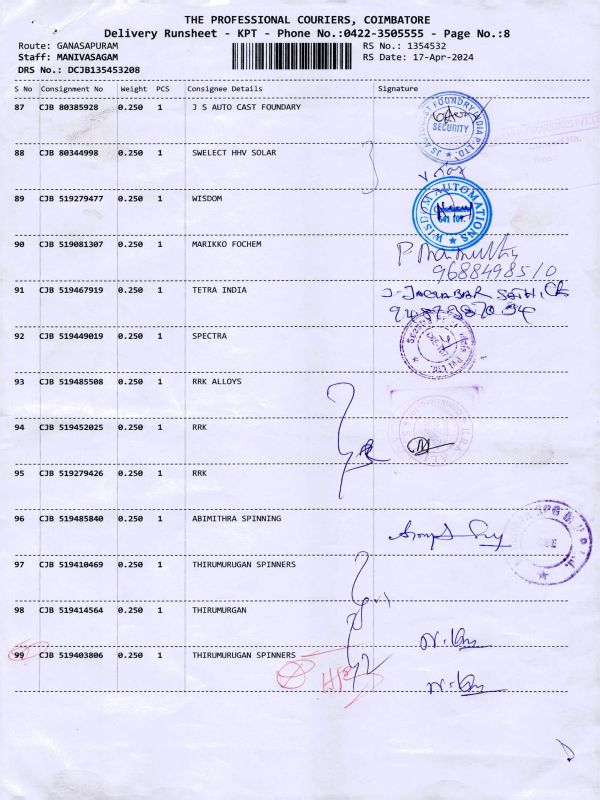 THE PROFESSIONAL COURIERS, COIMBATORE
Delivery Runsheet - KPT - Phone No.:0422-3505555 - Page No.:8
Route: GANASAPURAM RS No.: 1354532
Staff: MANIVASAGAM RS Date: 17-Apr-2024
DRS No.: DCJB135453208
S No Consignment No Weight PCS Consignee Details Signature
87 CJB 80385928 0.250 1 J S AUTO CAST FOUNDARY
SECURITY
88 CJB 80344998 0.250 1 SWELECT HHV SOLAR
89 CJB 519279477 0.250 1 WISDOM
WISDOM AUTOMATIONS
90 CJB 519081307 0.250 1 MARIKKO FOCHEM
9688498510
91 CJB 519467919 0.250 1 TETRA INDIA
92 CJB 519449019 0.250 1 SPECTRA
93 CJB 519485508 0.250 1 RRK ALLOYS
94 CJB 519452025 0.250 1 RRK
95 CJB 519279426 0.250 1 RRK
96 CJB 519485840 0.250 1 ABIMITHRA SPINNING
97 CJB 519410469 0.250 1 THIRUMURUGAN SPINNERS
98 CJB 519414564 0.250 1 THIRUMURGAN
99 CJB 519403806 0.250 1 THIRUMURUGAN SPINNERS